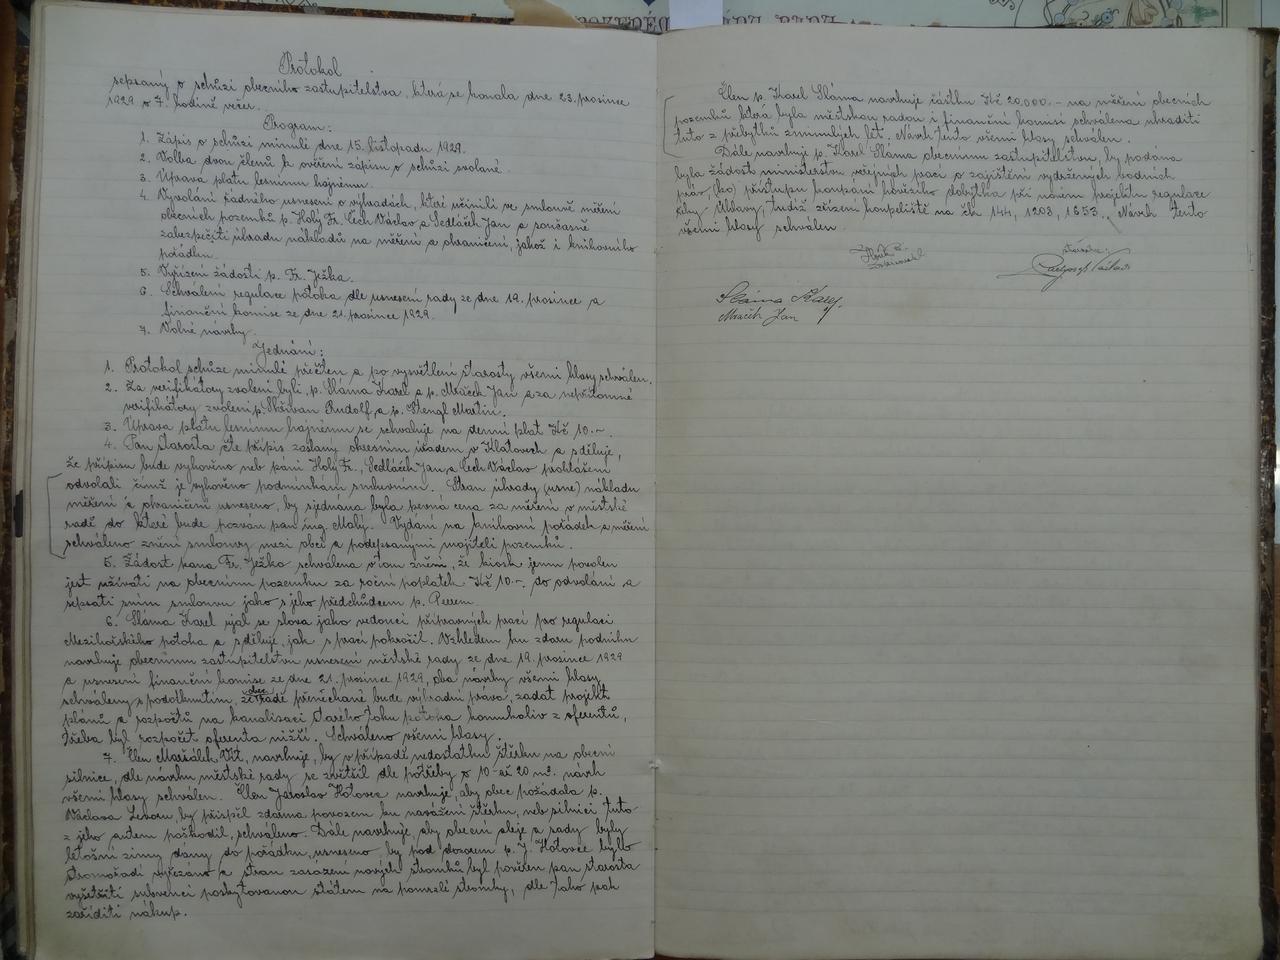 Protokol
sepsaný o schůzi obecního zastupitelstva, která se konala dne 23. prosince
1929 o 7. hodině večer.
Program:
1. Zápis o schůzi minulé dne 15. listopadu 1929.
2. Volba dvou členů k ověření zápisu o schůzi svolané.
3. Úprava platu lesnímu hajnému.
4. Vyvolání řádného usnesení o výhradách, které učinili ve smlouvě měření
obecních pozemků p. Holý Fr. Čech Václav a Sedláček Jan a současně
zabezpečiti úhradu nákladů na měření a ohraničení, jakož i knihovního
pořádku.
5. Vyřízení žádosti p. Fr. Ježka.
6. Schválení regulace potoka dle usnesení rady ze dne 19. prosince a
finanční komise ze dne 21. prosince 1929.
7. Volné návrhy.
Jednání:
1. Protokol schůze minulé přečten a po vysvětlení starosty všemi hlasy schválen.
2. Za verifikátory zvoleni byli, p. Sláma Karel a p. Mráček Jan a za nepřítomné
verifikátory zvoleni p. Skřivan Rudolf a p. Stengl Martin.
3. Úprava platu lesnímu hajnému se schvaluje na denní plat Kč 10.-.
4. Pan starosta čte přípis zaslaný okresním úřadem v Klatovech a sděluje,
že přípisu bude vyhověno neb páni Holý Fr., Sedláček Jan a Čech Václav prohlášení
odvolali čímž je vyhověno podmínkám smluvním. Stran úhrady (usne) nákladu
měření a ohraničení usneseno, by sjednána byla pevná cena za měření v městské
radě do které bude pozván pan ing. Malý. Vydání na knihovní pořádek a měření
schváleno znění smlouvy mezi obcí a podepsanými majiteli pozemků.
5. Žádost pana Fr. Ježka schválena v tom znění, že kiosk jemu povolen
jest užívati na obecnímu pozemku za roční poplatek Kč 10.- do odvolání a
sepsati s ním smlouvu jako s jeho předchůdcem p.
6. Sláma Karel ujal se slova jako vedoucí přípravných prací pro regulaci
Mezihořského potoka a sděluje, jak s prací pokročil. Vzhledem ku zdaru podniku
navrhuje obecnímu zastupitelstvu usnesení městské rady ze dne 19. prosince 1929
a usnesení finanční komise ze dne 21. prosince 1929, oba návrhy všemi hlasy
schváleny s podotknutím, že obec. radě přenechané bude výhradní práva, zadat projekt
plánů a rozpočtů na kanalisaci starého toku potoka komukoliv z oferentů,
třeba byl rozpočet oferenta nižší. Schváleno všemi hlasy.
7. Člen Maršálek Vít, navrhuje, by v případě nedostatku štěrku na obecní
silnice, dle návrhu městské rady se zvětšil dle potřeby o 10 až 20 m³. návrh
všemi hlasy schválen. Člen Jaroslav Hotovec navrhuje, aby obec požádala p.
Václava by přispěl zdarma povozem ku navážení štěrku, neb silnici tuto
z jeho autem poškodil, schváleno. Dále navrhuje, aby obecní aleje a sady byly
letošní zimy dány do pořádku, usneseno, by pod dozorem p. J. Hotovce bylo
stromořadí vyřezáno a stran zasazení nových stromků byl pověřen pan starosta
vyšetřiti subvenci poskytovanou státem na pomrzlé stromky, dle toho pak
zaříditi nákup.
Člen p. Karel Sláma navrhuje částku Kč 20.000.- na měření obecních
pozemků která byla městskou radou i finanční komisí schválena uhraditi
tuto z přebytků zminulých let. Návrh tento všemi hlasy schválen.
Dále navrhuje p. Karel Sláma obecnímu zastupitelstvu, by podána
byla žádost ministerstvu veřejných prací o zajištění vydržených vodních
práv, (ko) přístupu koupání hovězího dobytka při novém projektu regulace
řeky Úhlavy, tudíž zřízení koupeliště na čk 144, 1203, 1653. Návrh tento
všemi hlasy schválen.
starosta:
Sláma Karel
Mráček Jan